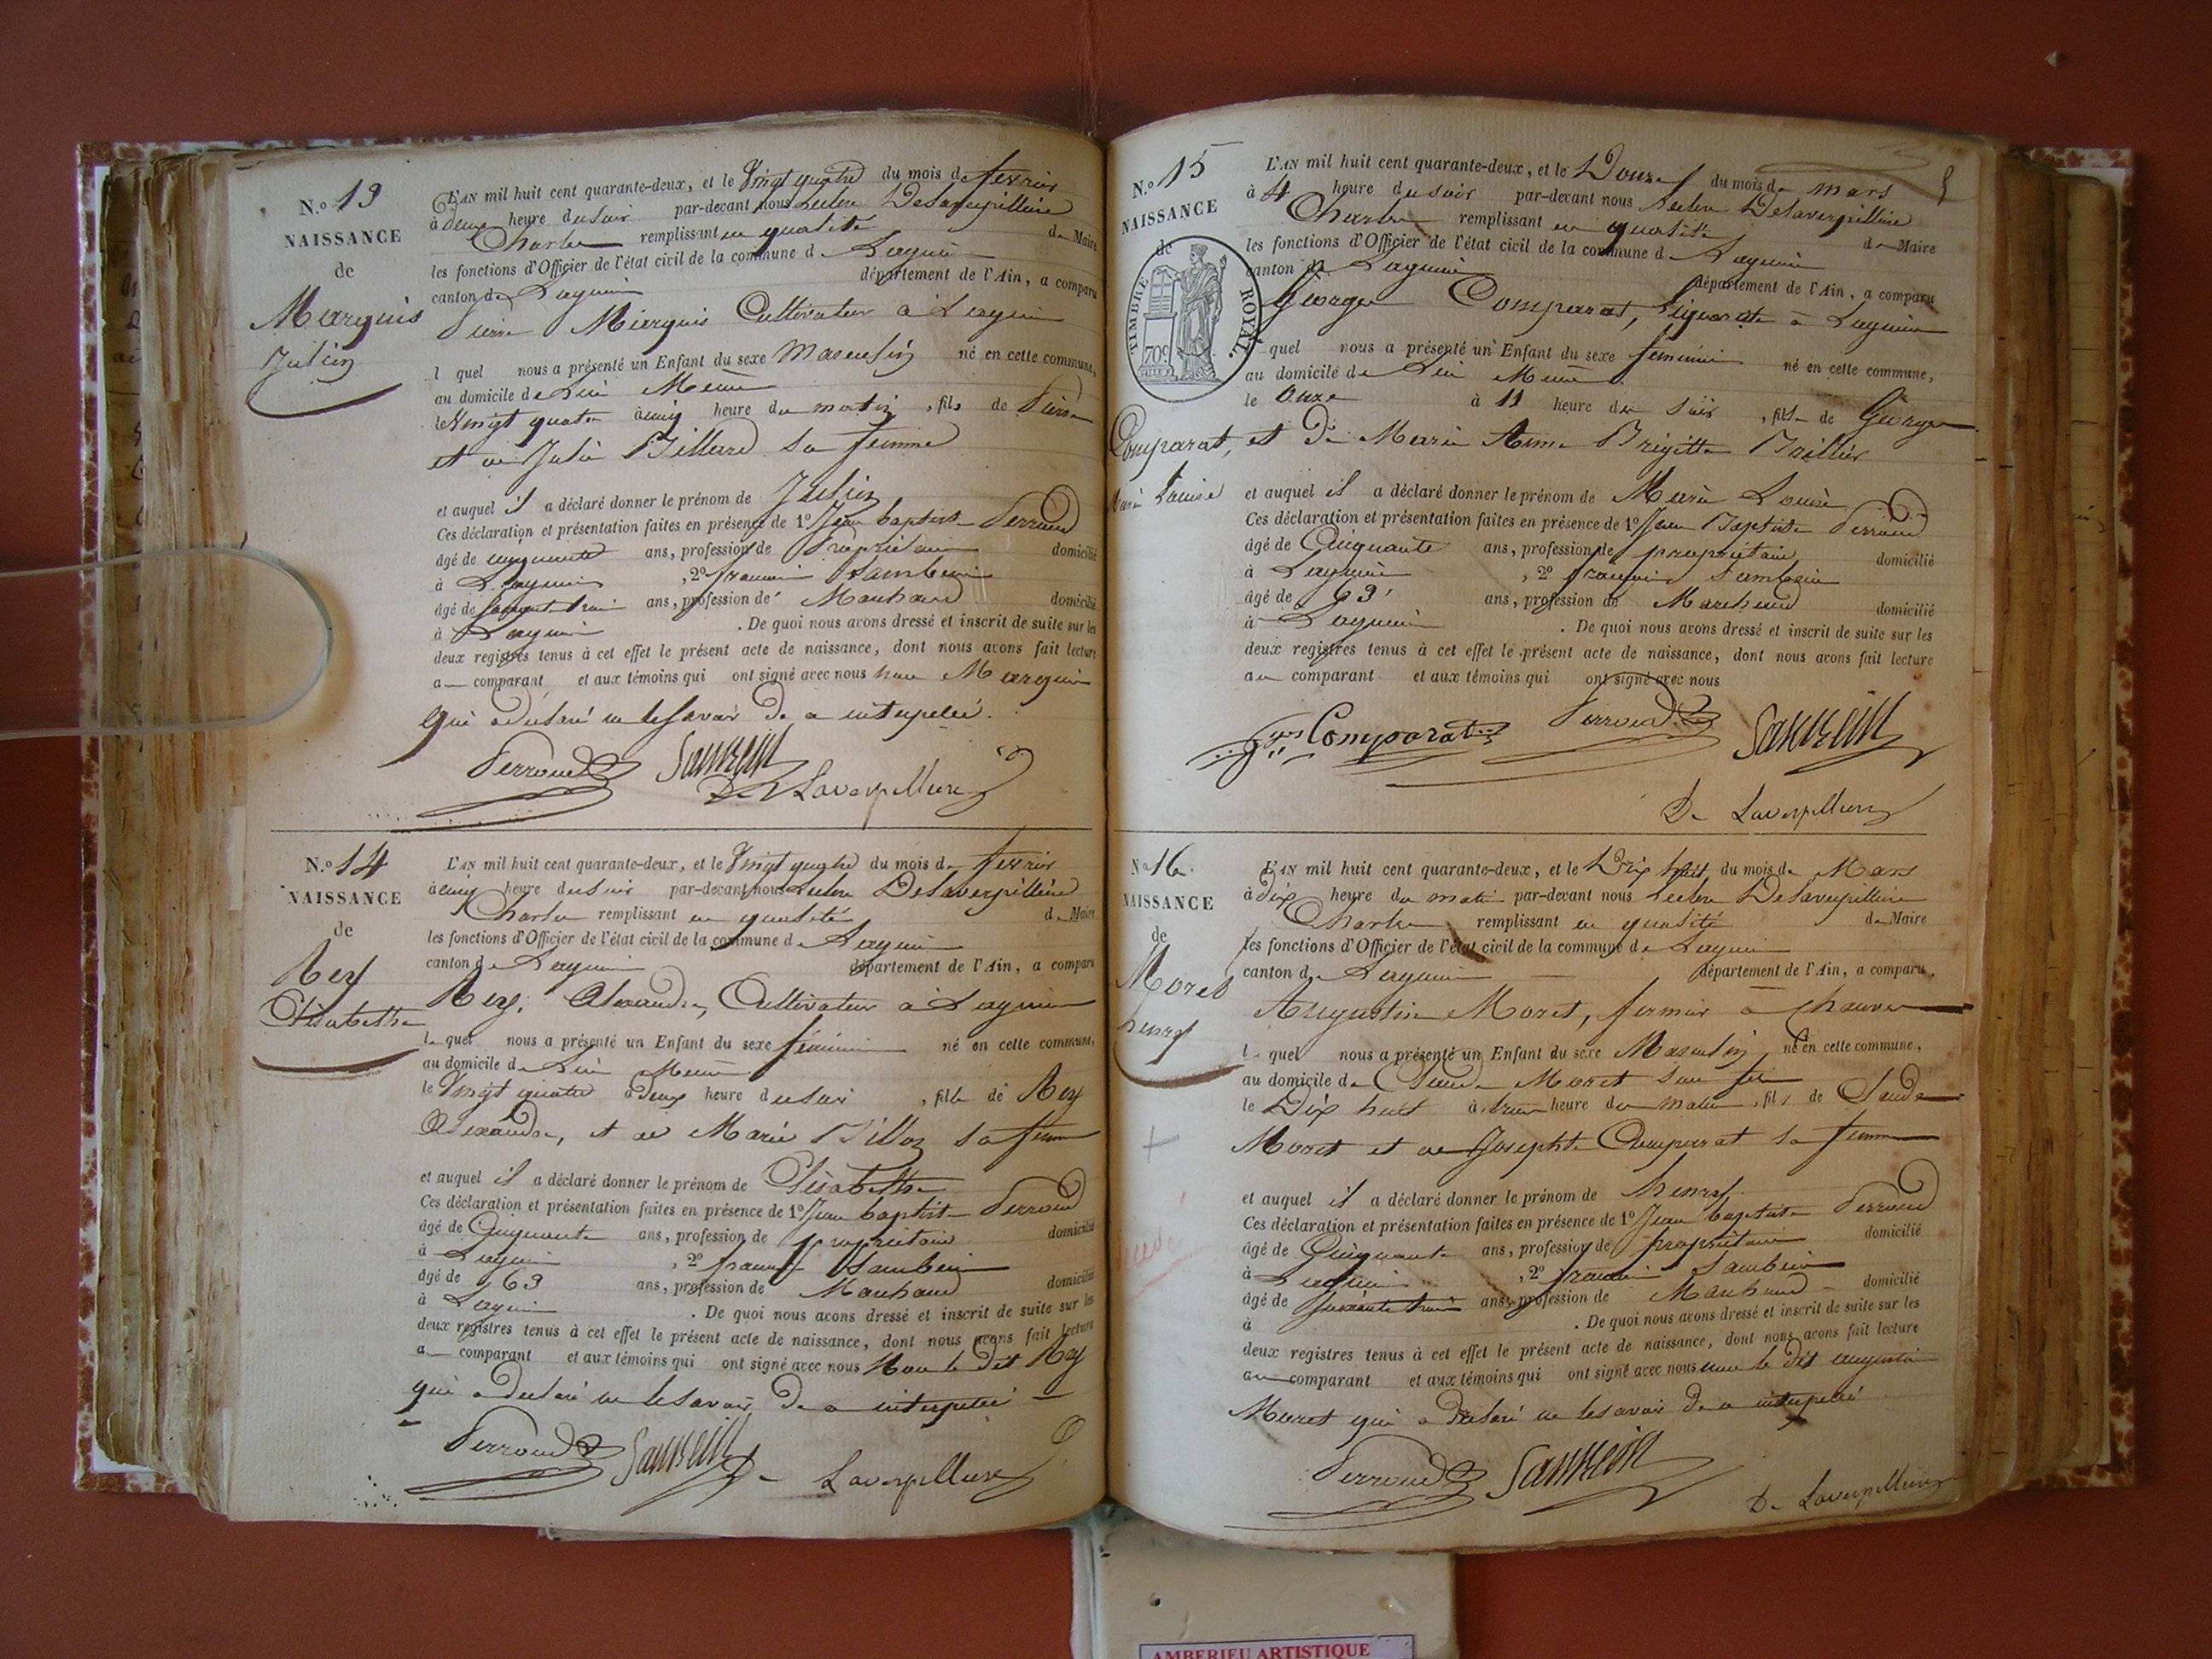 N.º 13
NAISSANCE
de
Marquis
Julien
L'AN mil huit cent quarante-deux, et le Vingt quatre du mois de fevrier
à deux heure du soir par-devant nous Leclere Delaverpilliere
Charles remplissant en qualité de Maire
les fonctions d'Officier de l'état civil de la commune de Lagnieu
canton de Lagnieu département de l'Ain, a comparu
Pierre Marquis Cultivateur à Lagnieu
l quel nous a présenté un Enfant du sexe Masculin né en cette commune,
au domicile de Lui Meme
le Vingt quatre à cinq heure du matin, fils de Pierre
et de Julie Billard sa femme
et auquel il a déclaré donner le prénom de Julien
Ces déclaration et présentation faites en présence de 1º Jean baptiste Perroud
âgé de cinquante ans, profession de Propriétaire domicilié
à Lagnieu, 2º francois Sambein
âgé de soixante trois ans, profession de Marchand domicilié
à Lagnieu. De quoi nous avons dressé et inscrit de suite sur les
deux registres tenus à cet effet le présent acte de naissance, dont nous avons fait lecture
au comparant et aux témoins qui ont signé avec nous non Marquis
qui a declaré ne le savoir de ce interpellé.
Perroud
De Laverpilliere
N.º 14
NAISSANCE
de
Rey
Elisabethe
L'AN mil huit cent quarante-deux, et le Vingt quatre du mois de fevrier
à cinq heure du soir par-devant nous Leclere Delaverpilliere
Charles remplissant en qualité de Maire
les fonctions d'Officier de l'état civil de la commune de Lagnieu
canton de Lagnieu département de l'Ain, a comparu
Rey. Alexandre, Cultivateur à Lagnieu
le quel nous a présenté un Enfant du sexe féminin né en cette commune,
au domicile de Lui Meme
le Vingt quatre à deux heure du soir, fille de Rey
Alexandre, et de Marie Billoz sa femme
et auquel il a déclaré donner le prénom de Elisabethe
Ces déclaration et présentation faites en présence de 1º Jean baptiste Perroud
âgé de Cinquante ans, profession de propriétaire domicilié
à Lagnieu, 2º francois Sambein
âgé de 63 ans, profession de Marchand domicilié
à Lagnieu. De quoi nous avons dressé et inscrit de suite sur les
deux registres tenus à cet effet le présent acte de naissance, dont nous avons fait lecture
au comparant et aux témoins qui ont signé avec nous Non le dit Rey
qui a declaré ne le savoir de ce interpellé
Perroud
De Laverpilliere
N.º 15
NAISSANCE
de
TIMBRE ROYAL.
70c
Comparat,
Marie Louise
L'AN mil huit cent quarante-deux, et le Douze du mois de mars
à 4 heure du soir par-devant nous Leclere Delaverpilliere
Charles remplissant en qualité de Maire
les fonctions d'Officier de l'état civil de la commune de Lagnieu
canton de Lagnieu département de l'Ain, a comparu
George Comparat, à Lagnieu
l quel nous a présenté un Enfant du sexe feminin né en cette commune,
au domicile de Lui Meme
le Onze à 11 heure du soir, fille de George
et de Marie Anne Brigitte Brillier
et auquel il a déclaré donner le prénom de Marie Louise
Ces déclaration et présentation faites en présence de 1º Jean Baptiste Perroud
âgé de Cinquante ans, profession de propriétaire domicilié
à Lagnieu, 2º francois Sambein
âgé de 63 ans, profession de Marchand domicilié
à Lagnieu. De quoi nous avons dressé et inscrit de suite sur les
deux registres tenus à cet effet le présent acte de naissance, dont nous avons fait lecture
au comparant et aux témoins qui ont signé avec nous
Comparat Perroud
De Laverpilliere
No 16.
NAISSANCE
de
Moret
henry
L'AN mil huit cent quarante-deux, et le Dix huit du mois de Mars
à dix heure du matin par-devant nous Leclere Delaverpilliere
Charles remplissant en qualité de Maire
les fonctions d'Officier de l'état civil de la commune de Lagnieu
canton de Lagnieu département de l'Ain, a comparu,
Augustin Moret, fermier à
le quel nous a présenté un Enfant du sexe Masculin né en cette commune,
au domicile de Claude Moret son fils
le Dix huit à heure du matin, fils de Claude
Moret et de Josephte Comparat sa femme
et auquel il a déclaré donner le prénom de henry
Ces déclaration et présentation faites en présence de 1º Jean baptiste Perroud
âgé de Cinquante ans, profession de propriétaire domicilié
à Lagnieu, 2º francois Sambein
âgé de soixante trois ans, profession de Marchand domicilié
à. De quoi nous avons dressé et inscrit de suite sur les
deux registres tenus à cet effet le présent acte de naissance, dont nous avons fait lecture
au comparant et aux témoins qui ont signé avec nous non le dit augustin
Moret qui a declaré ne le savoir de ce interpellé
Perroud
De Laverpilliere
AMBERIEU ARTISTIQUE